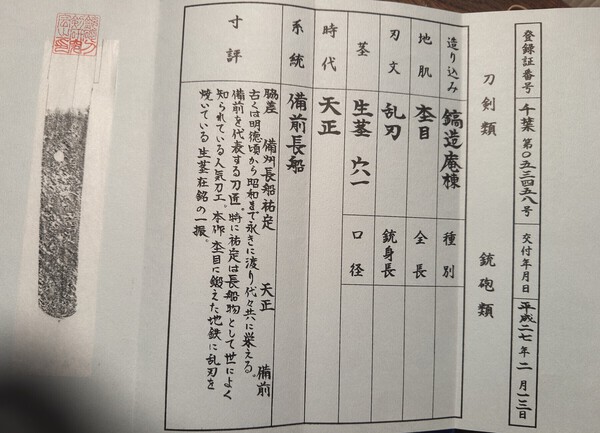 登録証番号 千葉 第〇五三四五八号 交付年月日 平成二七年二月一三日
刀剣類 銃砲類
造り込み 鎬造庵棟 種別
地肌 杢目 全長
刃文 乱刃 銃身長
茎 生茎 穴一 口径
時代 天正
系統 備前長船
寸評
脇差 備州長船祐定 天正 備前
古くは明徳頃から昭和まで永きに渡り代々共に栄える。
備前を代表する刀匠。特に祐定は長船物として世によく
知られている人気刀工。本作 杢目に鍛えた地鉄に乱刃を
焼いている 生茎在銘の一振。